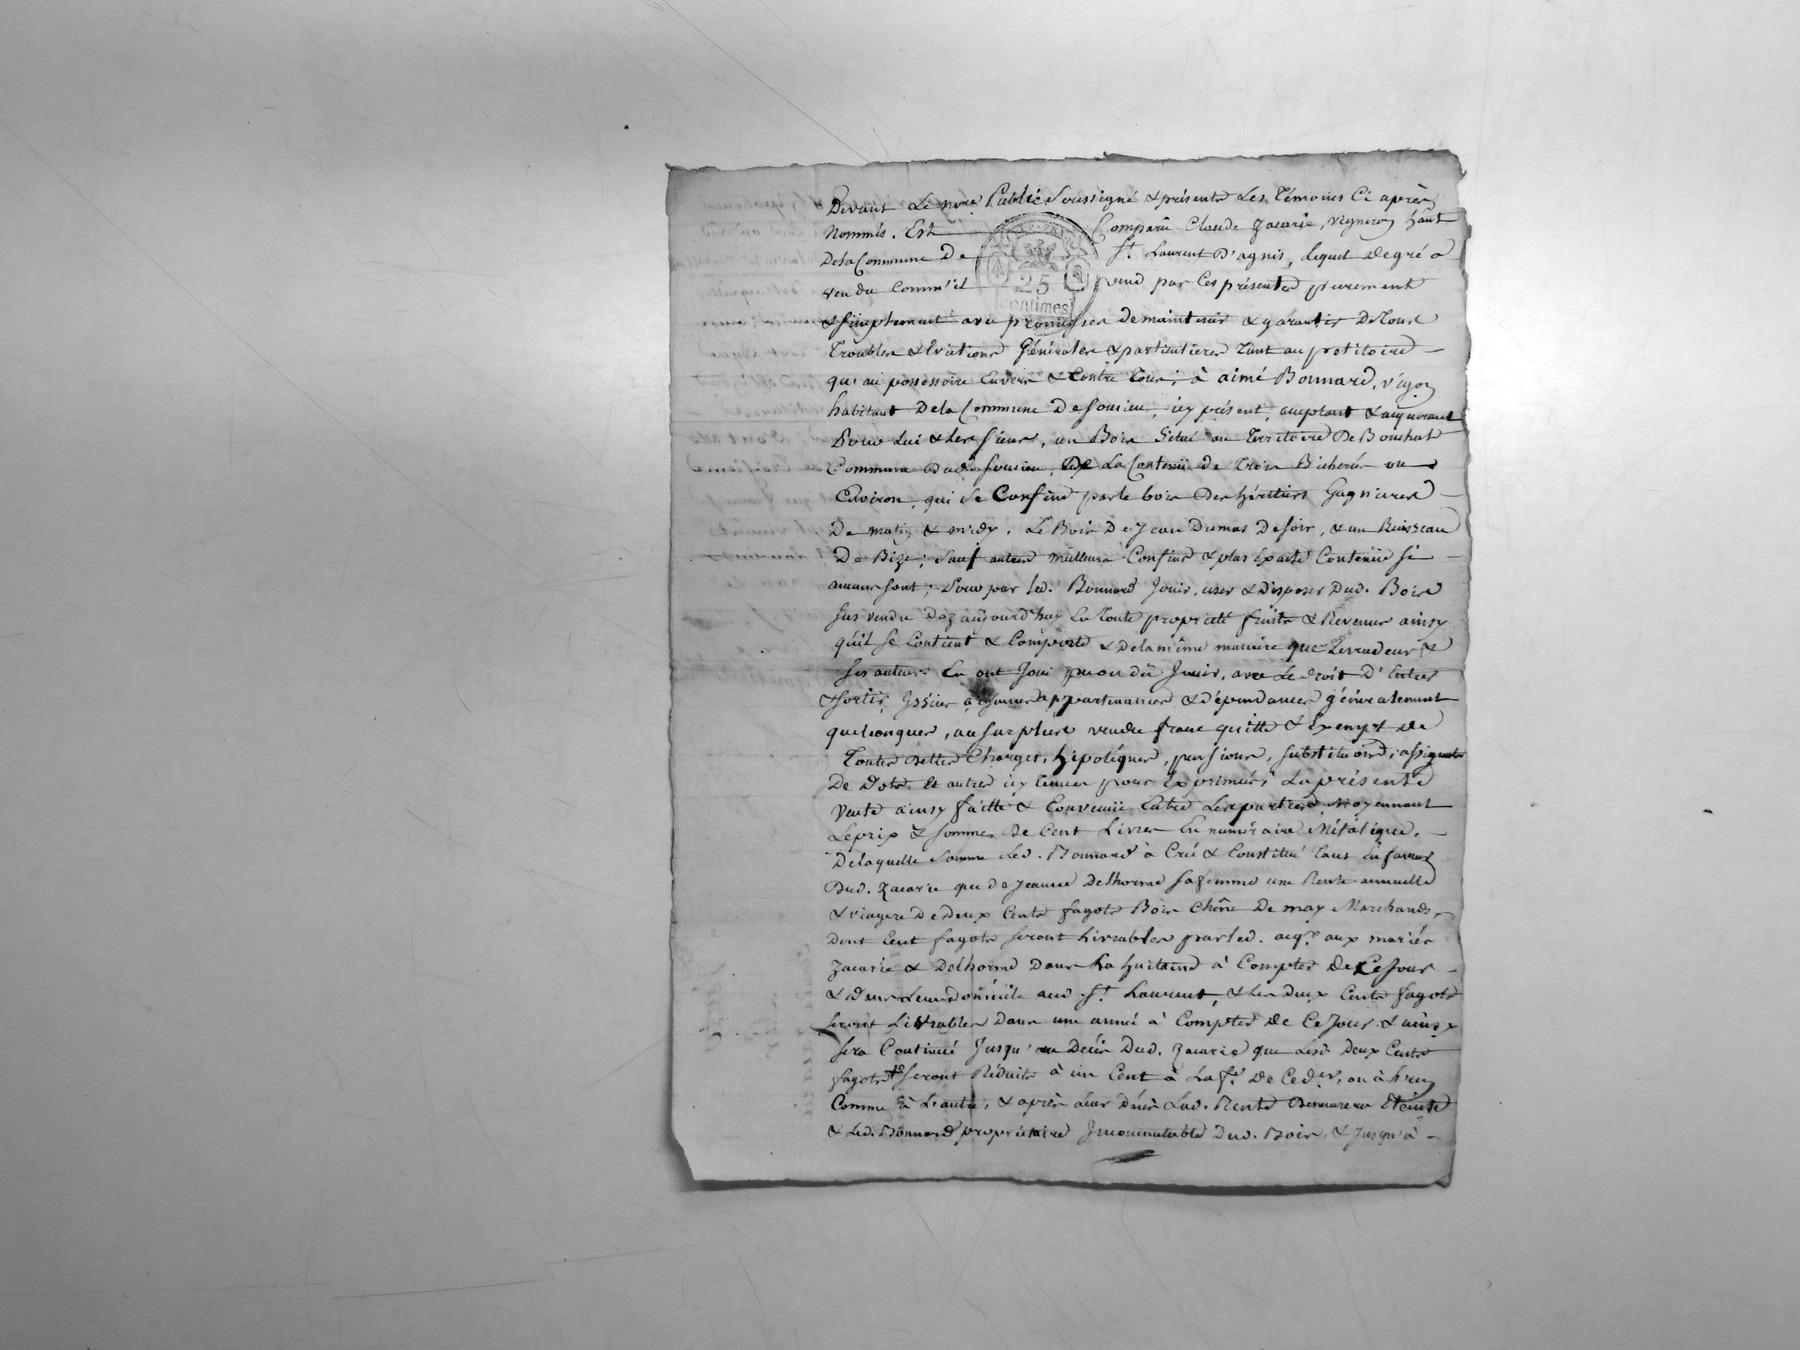 Devant Le no.re Public Soussigné & présents Les Témoins Ci après
Nommés. Est Comparu Claude Zacarie, vigneron habt
De la Commune De St. Laurent D'agnis, Lequel de gré a
vendu Comm'il vend par Ces présentes purement
25
centimes
& simplement avec promesses de maintenir & garantir De tous
Troubles & Evictions Générales & particulieres tant au petitoire
qu'au possessoire Envers & Contre tous; à aimé Bonnard, v'gon
habitant De la Commune De Sourieu, icy présent, acceptant & acquerant
Pour Lui & Les siens, un Bois situé au Territoire De Bouchat
Commune dud. Sourieu, De La Contenüe de Trois Bicherées ou
Environ, qui se Confine par le bois Des héritiers Gagnieres
De matin & midy, Le Bois De Jean Dumas De soir, & un Ruisseau
De Bize; sauf autres meilleurs Confins & plus Exacte Contenüe si
aucuns sont; Pour par led. Bonnard Jouir, user & Disposer Dud. Bois
sus vendu Dèz aujourd'huy En Toute propriété fruits & Revenus ainsy
qu'il se Contient & Comporte & De la même maniere que Le vendeur &
ses auteurs En ont Joui pu ou dû Jouir, avec Le droit D'Entrer
& sortir, Issües aisances appartenances & dépendances généralement
quelconques, au surplus vendu franc quitte & Exempt de
Toutes Dettes Charges, hipotéques, pensions, substitutions, assignats
De Dots. Et autres icy tenus pour Exprimés; La présente
vente ainsy faitte & Convenüe Entre Les parties Moyennant
Le prix & somme De Cent Livres En numéraire Métalique,
De laquelle somme Led. Bonnard à Créé & Constitué Tant En faveur
Dud. Zacarie que de Jeanne Delhorme sa femme une Rente annuelle
& viagere De Deux Cents fagots Bois Chêne De may Marchands,
dont Cent fagots seront Livrables par led. acq.r aux mariés
Zacarie & Delhorme Dans La huitaine à Compter De Ce Jour
& Dans Leur Domicile aud. St. Laurent, & Les Deux Cents fagots
seront Livrables Dans une année à Compter de Ce Jour & ainsy
sera Continué Jusqu'au Décès Dud. Zacarie que Lesd. Deux Cents
fagots seront Réduits à un Cent à La f.e De Ce d.er, ou à h'un
Comme à L'autre, & après Leur Décès Lad. Rente Demeurera Eteinte
& Led. Bonnard propriétaire Jncommutable Dud. Bois, & Jusqu'à